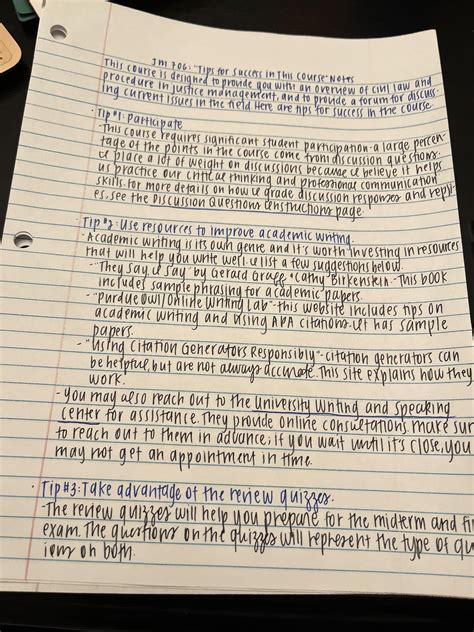 JM 706: "Tips for Success in This Course" Notes
This course is designed to provide you with an overview of civil law and
procedure in justice management, and to provide a forum for discuss-
ing current issues in the field. Here are tips for success in the course.
· Tip #1: Participate
This course requires significant student participation - a large percen-
tage of the points in the course come from discussion questions.
I place a lot of weight on discussions because I believe it helps
us practice our critical thinking and professional communication
skills. For more details on how I grade discussion responses and repl-
ies, see the Discussion Questions Instructions page
· Tip #2: Use resources to improve academic writing.
- Academic writing is its own genre and it's worth investing in resources
that will help you write well. I list a few suggestions below.
- "They Say I Say" by Gerald Graff & Cathy Birkenstein - This book
includes sample phrasing for academic papers.
- "Purdue Owl/Online Writing Lab" - this website includes tips on
academic writing and using APA citations. It has sample
papers.
- "Using Citation Generators Responsibly" - citation generators can
be helpful, but are not always accurate. This site explains how they
work.
- You may also reach out to the University Writing and Speaking
Center for assistance. They provide online consultations. make sur
to reach out to them in advance; if you wait until it's close, you
may not get an appointment in time.
· Tip #3: Take advantage of the review quizzes.
- The review quizzes will help you prepare for the midterm and fi
exam. The questions on the quizzes will represent the type of qu
ions on both.